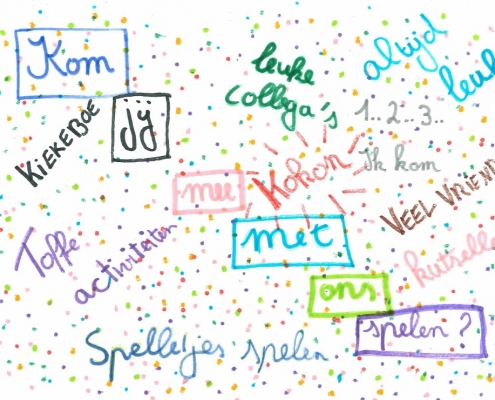 Kom
leuke
collega's
altijd
leuk
KIEKEBOE
jij
1..2..3..
Ik kom
mee
Kokon
VEEL VRIEND
Toffe
activiteiten
met
knutselle
ons
spelen?
Spelletjes spelen